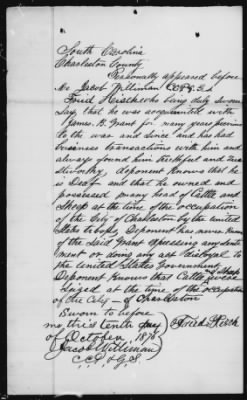 South Carolina
Charleston County
Personally appeared before
Me Jacob Williman C.C.P & G.S
Fried who being duly Sworn
Say, that he was acquainted with
James. B. Grant for many years previous
to the war and since and has had
business transactions with him and
always found him truthful and trus
tworthy, deponent knows that he
is Deaf and that he owned and
possessed many head of Cattle and
Sheep at the time of the occupation
of the City of Charleston by the united
States troops, Deponent has never known
of the Said Grant expressing any senti
ment or doing any act disloyal to
the united States Government
Deponent Knows that Cattle and Sheep were
Seized at the time of the occupation
of the City of Charleston
Sworn to before
me this tenth day
of October 1876
Jacob Williman
C.C.P & G.S